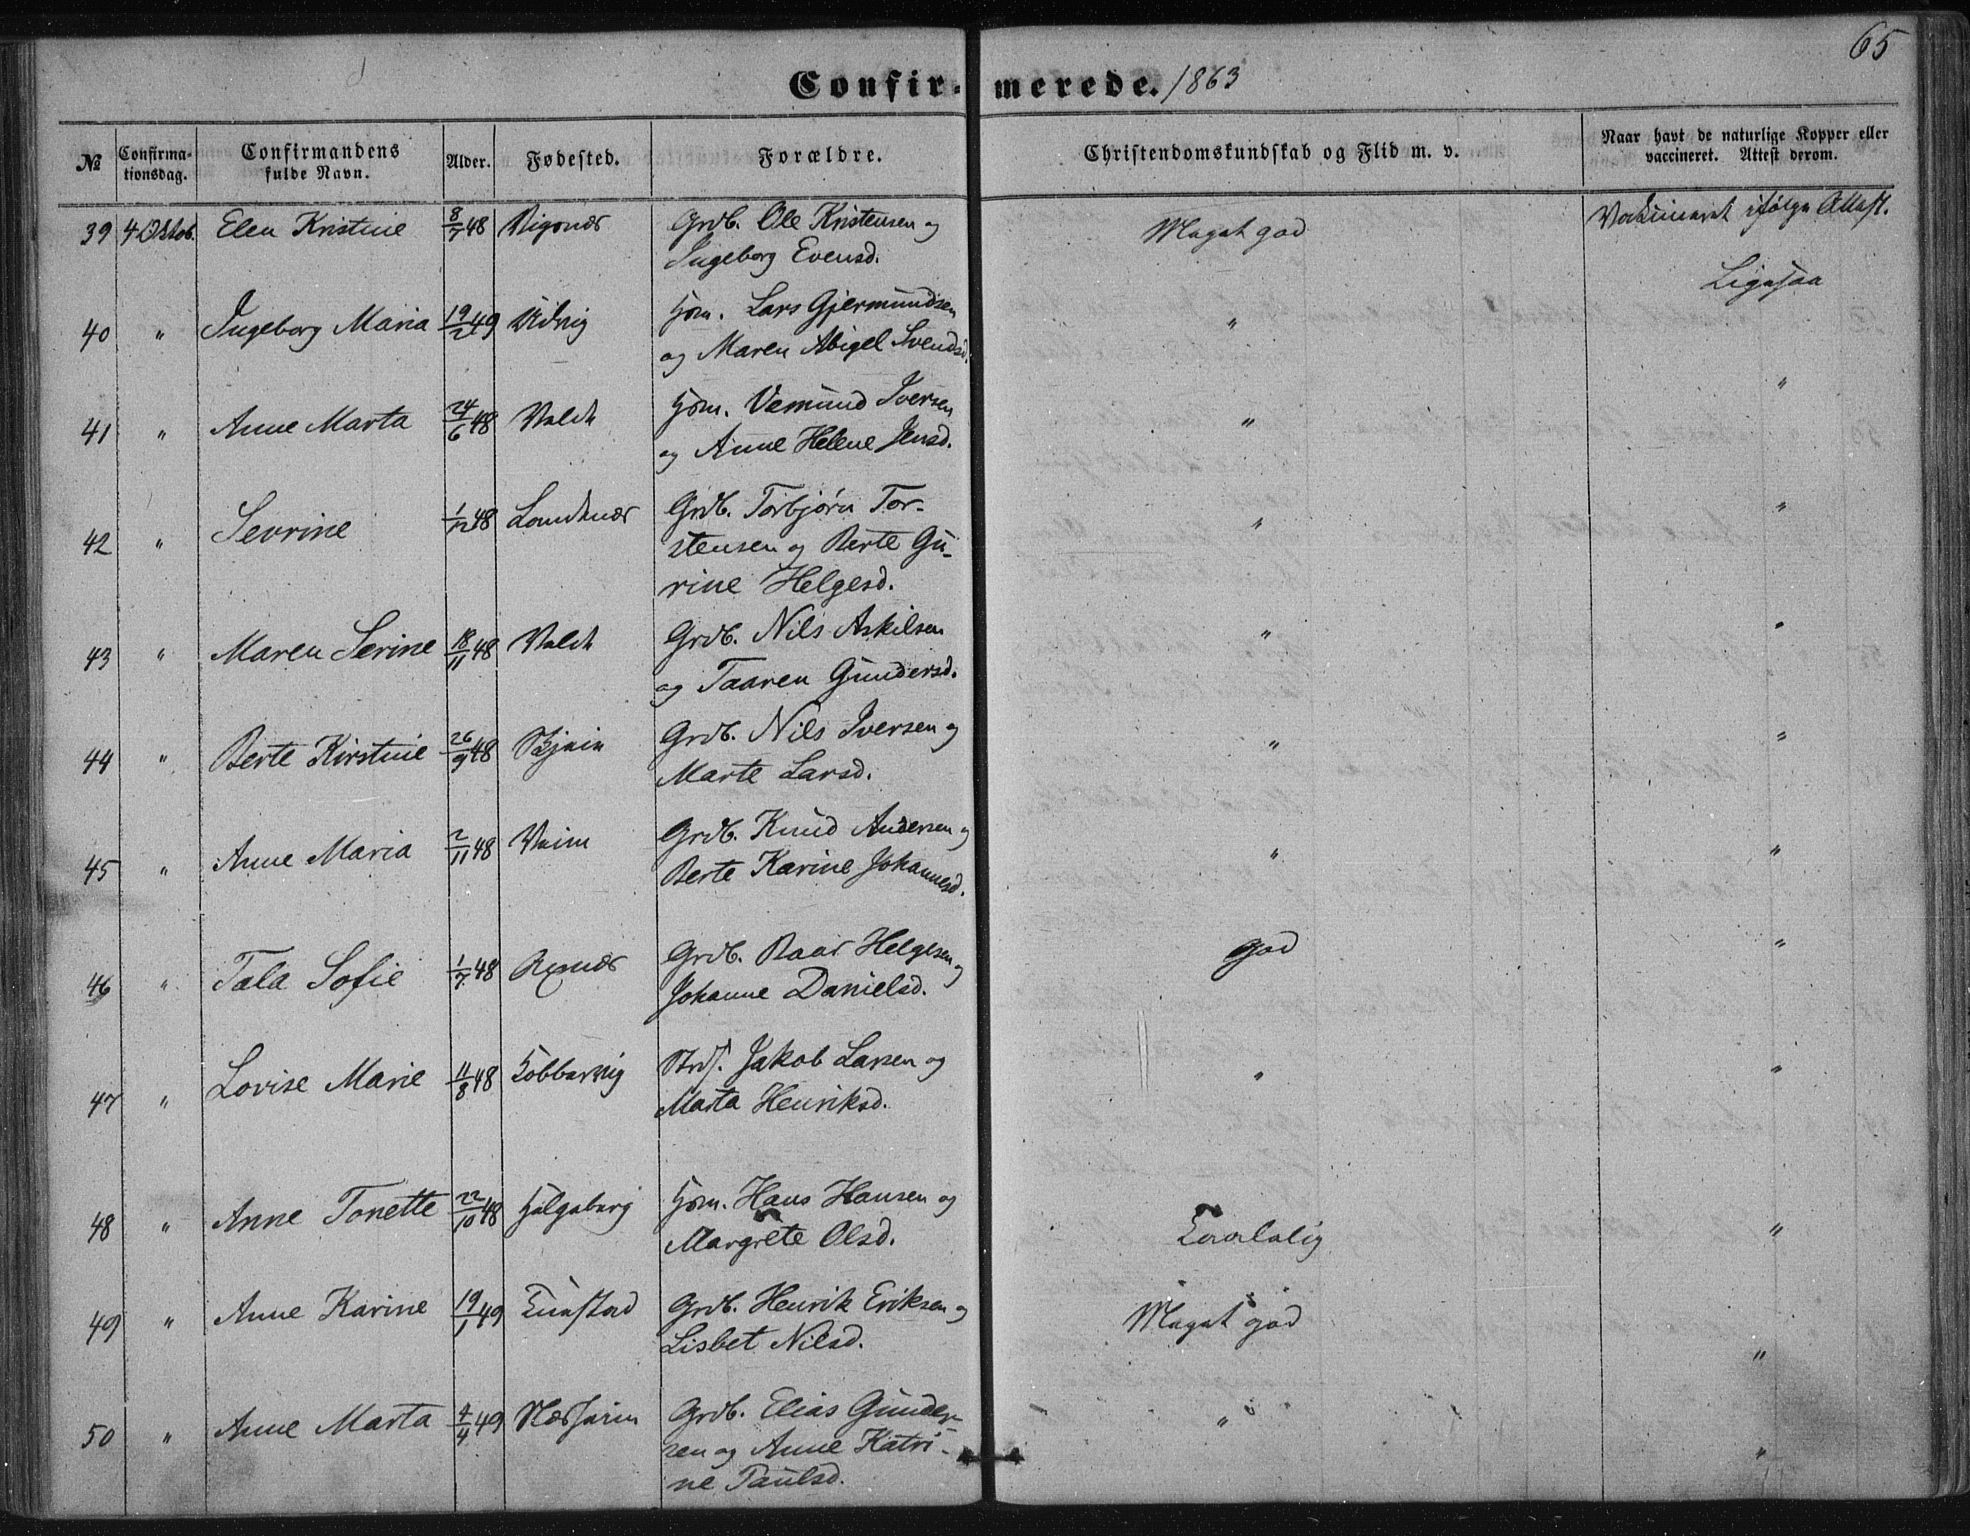 65
Confirmerede. 1863
No Confirmationsdag. Confirmandens fulde Navn. Alder. Fødested. Forældre. Christendomskundskab og Flid m. v. Naar havt de naturlige Kopper eller vaccineret. Attest derom.
39 4 Oktob. Elen Kristine 8/7 48 Vigenæs Grdb. Ole Kristensen og Meget god Vaksineret ifølge Attest.
Ingeborg Evensd.
Ligesaa
40 " Ingeborg Maria 19/2 49 Udvig Hsm. Lars Gjermundsen "
og Maren Abigel Svendsd.
41 " Anne Marta 24/6 48 Valde Hsm. Vemund Iversen " "
og Anne Helene Jensd.
42 " Sevrine 1/12 48 Landenæs Grdb. Torbjørn Tor- " "
stensen og Berte Gu-
rine Helgesd.
43 " Maren Serine 18/11 48 Valde Grdb. Nils Askilsen " "
og Taaren Gundersd.
44 " Berte Kirstine 26/9 48 Grdb. Nils Iversen og " "
Marte Larsd.
45 " Anne Maria 2/11 48 Grdb. Knud Andersen og " "
Berte Karine Johannesd.
46 " Tala Sofie 1/7 48 Grdb. Roar Helgesen og god "
Johanne Danielsd.
47 " Lovise Marie 11/8 48 Kobbervig Strds. Jakob Larsen og " "
Marta Henriksd.
48 " Anne Tonette 22/10 48 Helgaberg Hsm. Hans Hansen og Taalelig "
Margrete Olsd.
49 " Anne Karine 19/1 49 Tunstad Grdb. Henrik Eriksen og Meget god "
Lisbet Nilsd.
50 " Anne Marta 4/4 49 Næsheim Grdb. Elias Gunder- " "
sen og Anne Katri-
ne Paulsd.